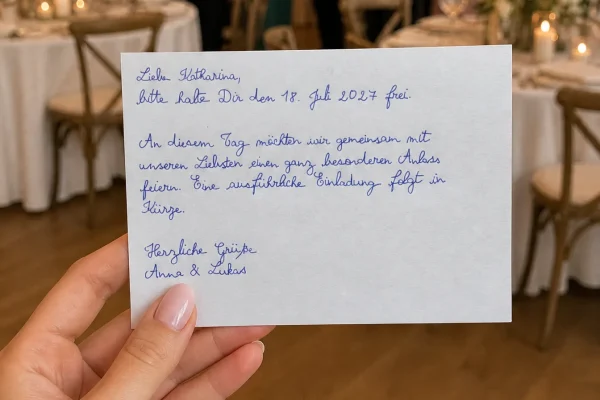 Liebe Katharina,
bitte halte Dir den 18. Juli 2027 frei.
An diesem Tag möchten wir gemeinsam mit
unseren Liebsten einen ganz besonderen Anlass
feiern. Eine ausführliche Einladung folgt in
Kürze.
Herzliche Grüße
Anna & Lukas